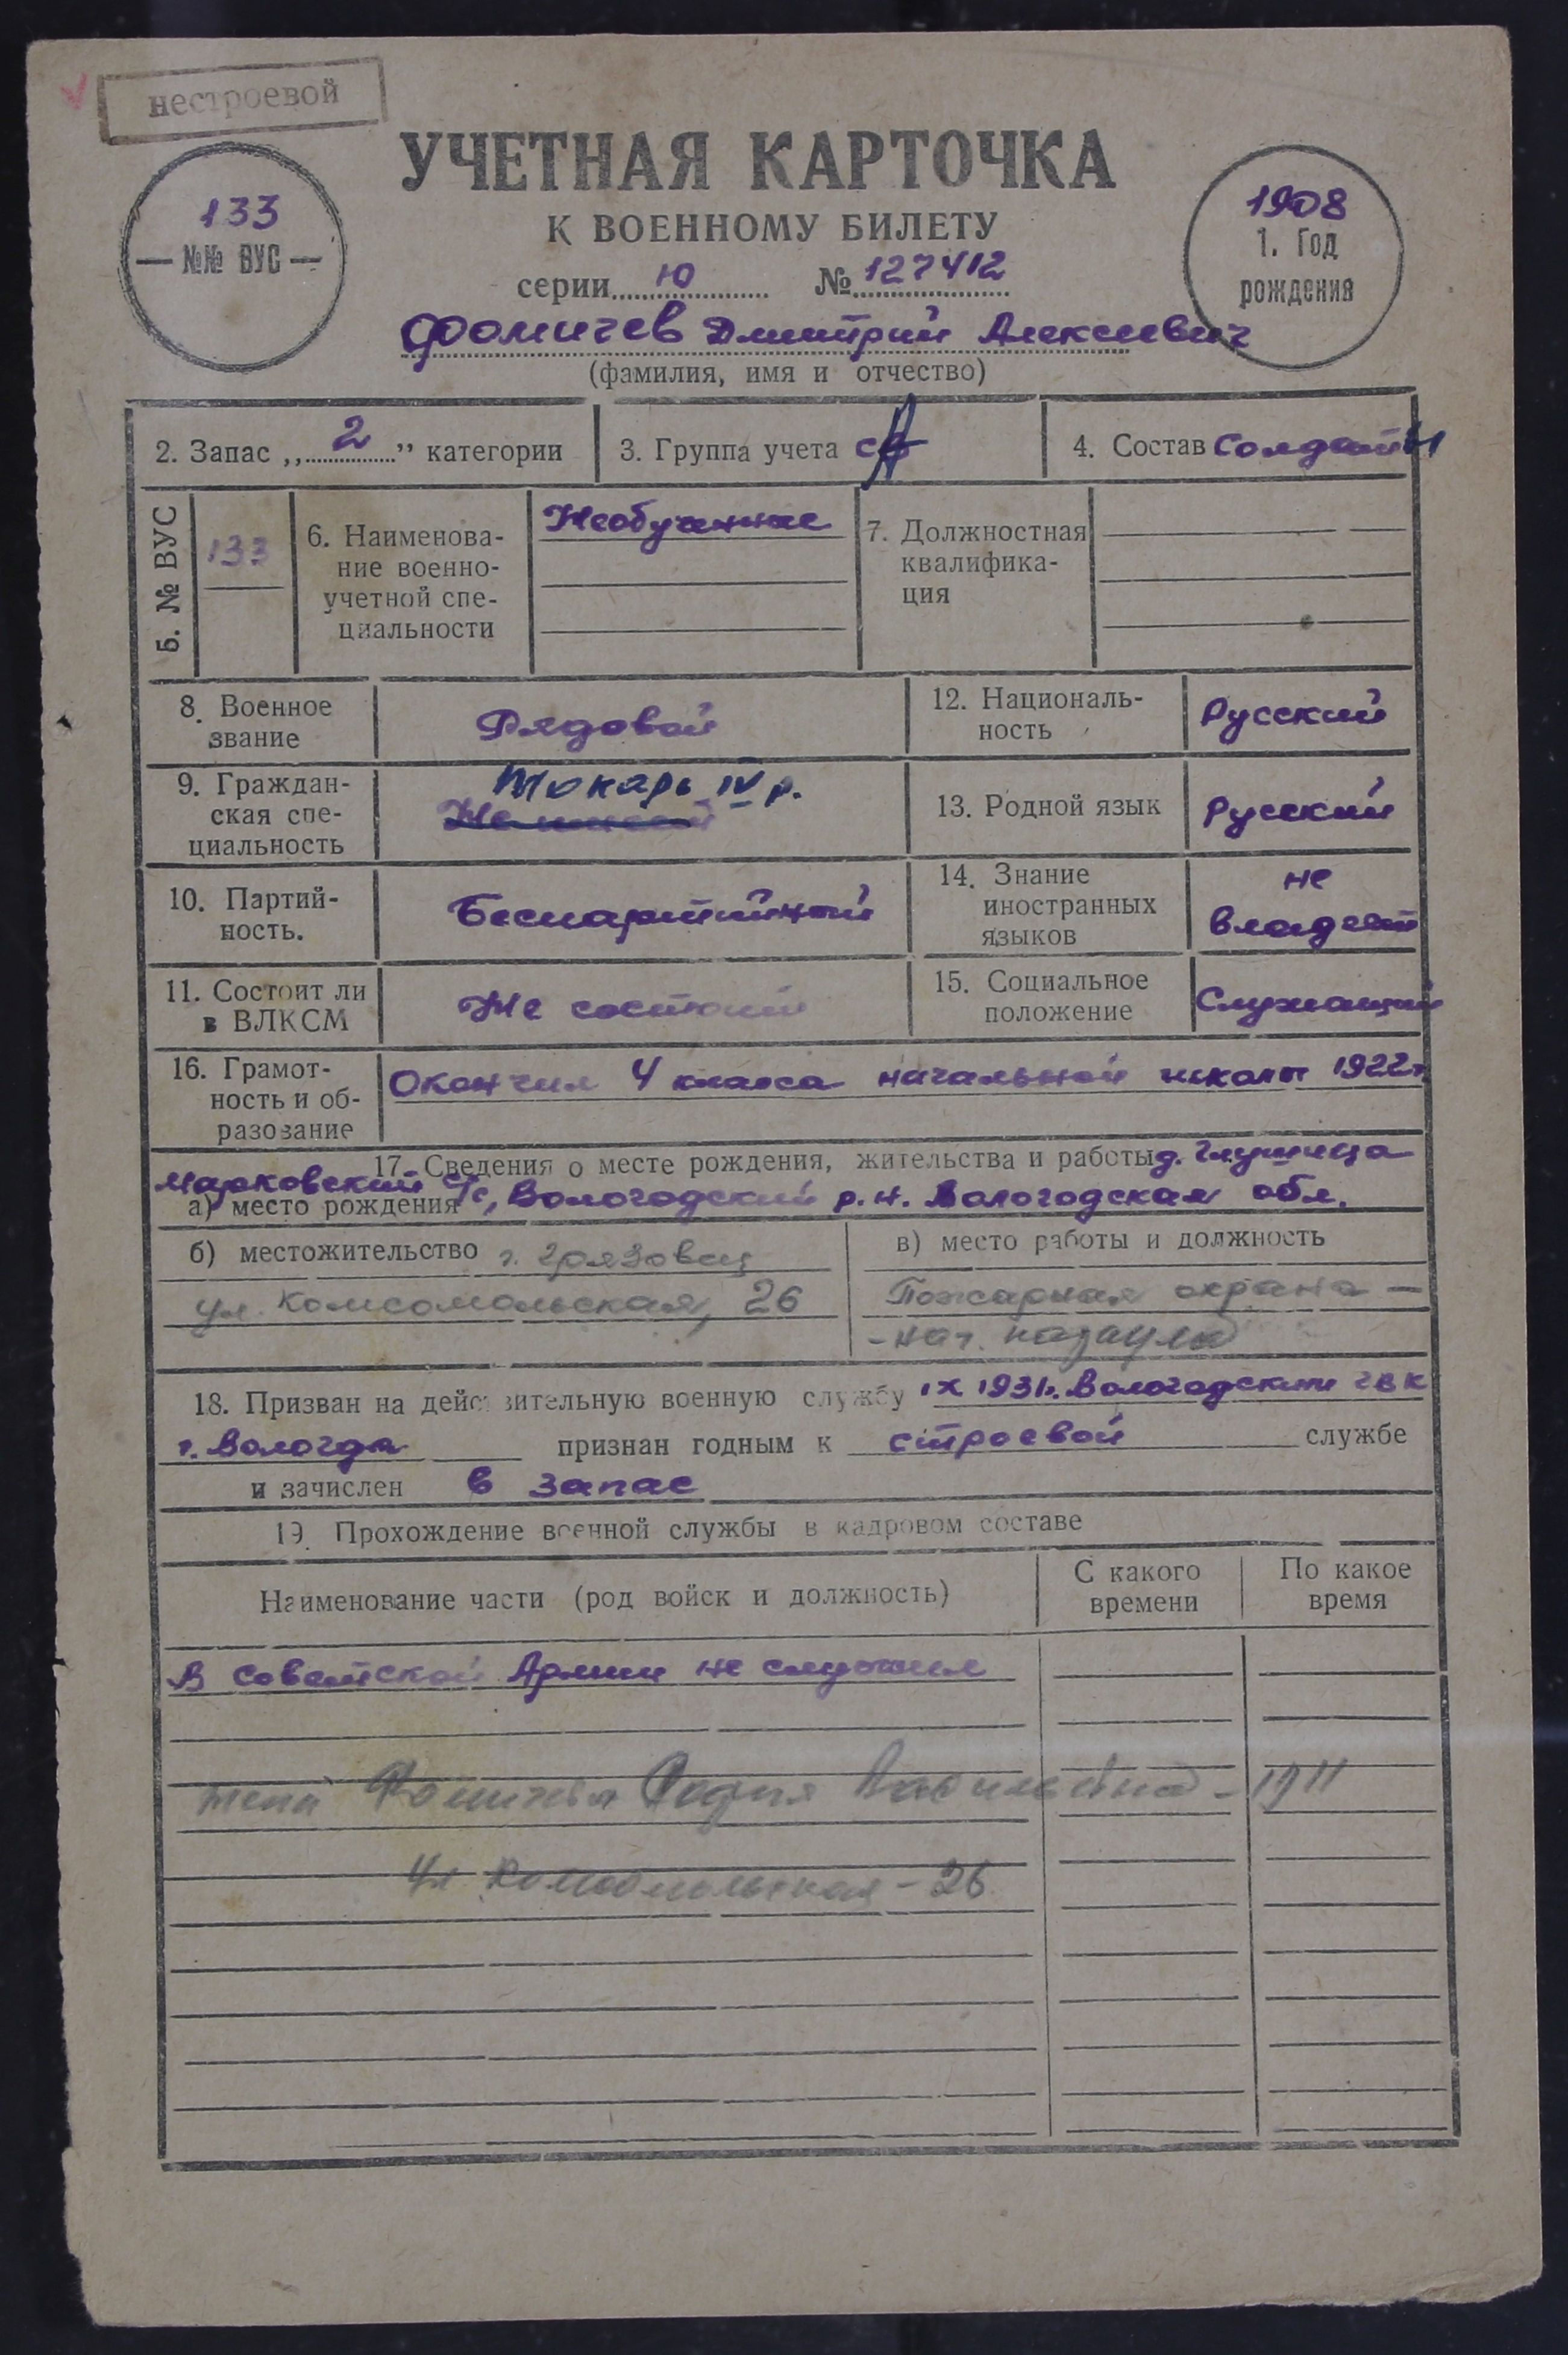 нестроевой
УЧЕТНАЯ КАРТОЧКА
К ВОЕННОМУ БИЛЕТУ
133
№№ ВУС
1908
1. Год
рождения
серии Ю № 127412
Фомичев Дмитрий Алексеевич
(фамилия, имя и отчество)
2. Запас „2” категории
3. Группа учета СА
4. Состав Солдаты
5. № ВУС
133
6. Наименова-
ние военно-
учетной спе-
циальности
Необученные
7. Должностная
квалифика-
ция
8. Военное
звание
Рядовой
12. Националь-
ность
Русский
9. Граждан-
ская спе-
циальность
Токарь IV р.
13. Родной язык
Русский
10. Партий-
ность.
Беспартийный
14. Знание
иностранных
языков
не
владеет
11. Состоит ли
в ВЛКСМ
Не состоит
15. Социальное
положение
Служащий
16. Грамот-
ность и об-
разование
Окончил 4 класса начальной школы 1922г.
17. Сведения о месте рождения, жительства и работы д. Глушица
Марковский с/с, Вологодский р.н. Вологодская обл.
а) место рождения
б) местожительство г. Грязовец
ул. Комсомольская, 26
в) место работы и должность
Пожарная охрана –
- нач. караула
18. Призван на действительную военную службу IX 1931г. Вологодским ГВК
г. Вологда признан годным к строевой службе
и зачислен в запас
19. Прохождение военной службы в кадровом составе
Наименование части (род войск и должность)
С какого
времени
По какое
время
В Советской Армии не служил
жена Фомичева Васильевна - 1911
ул Комсомольская - 26